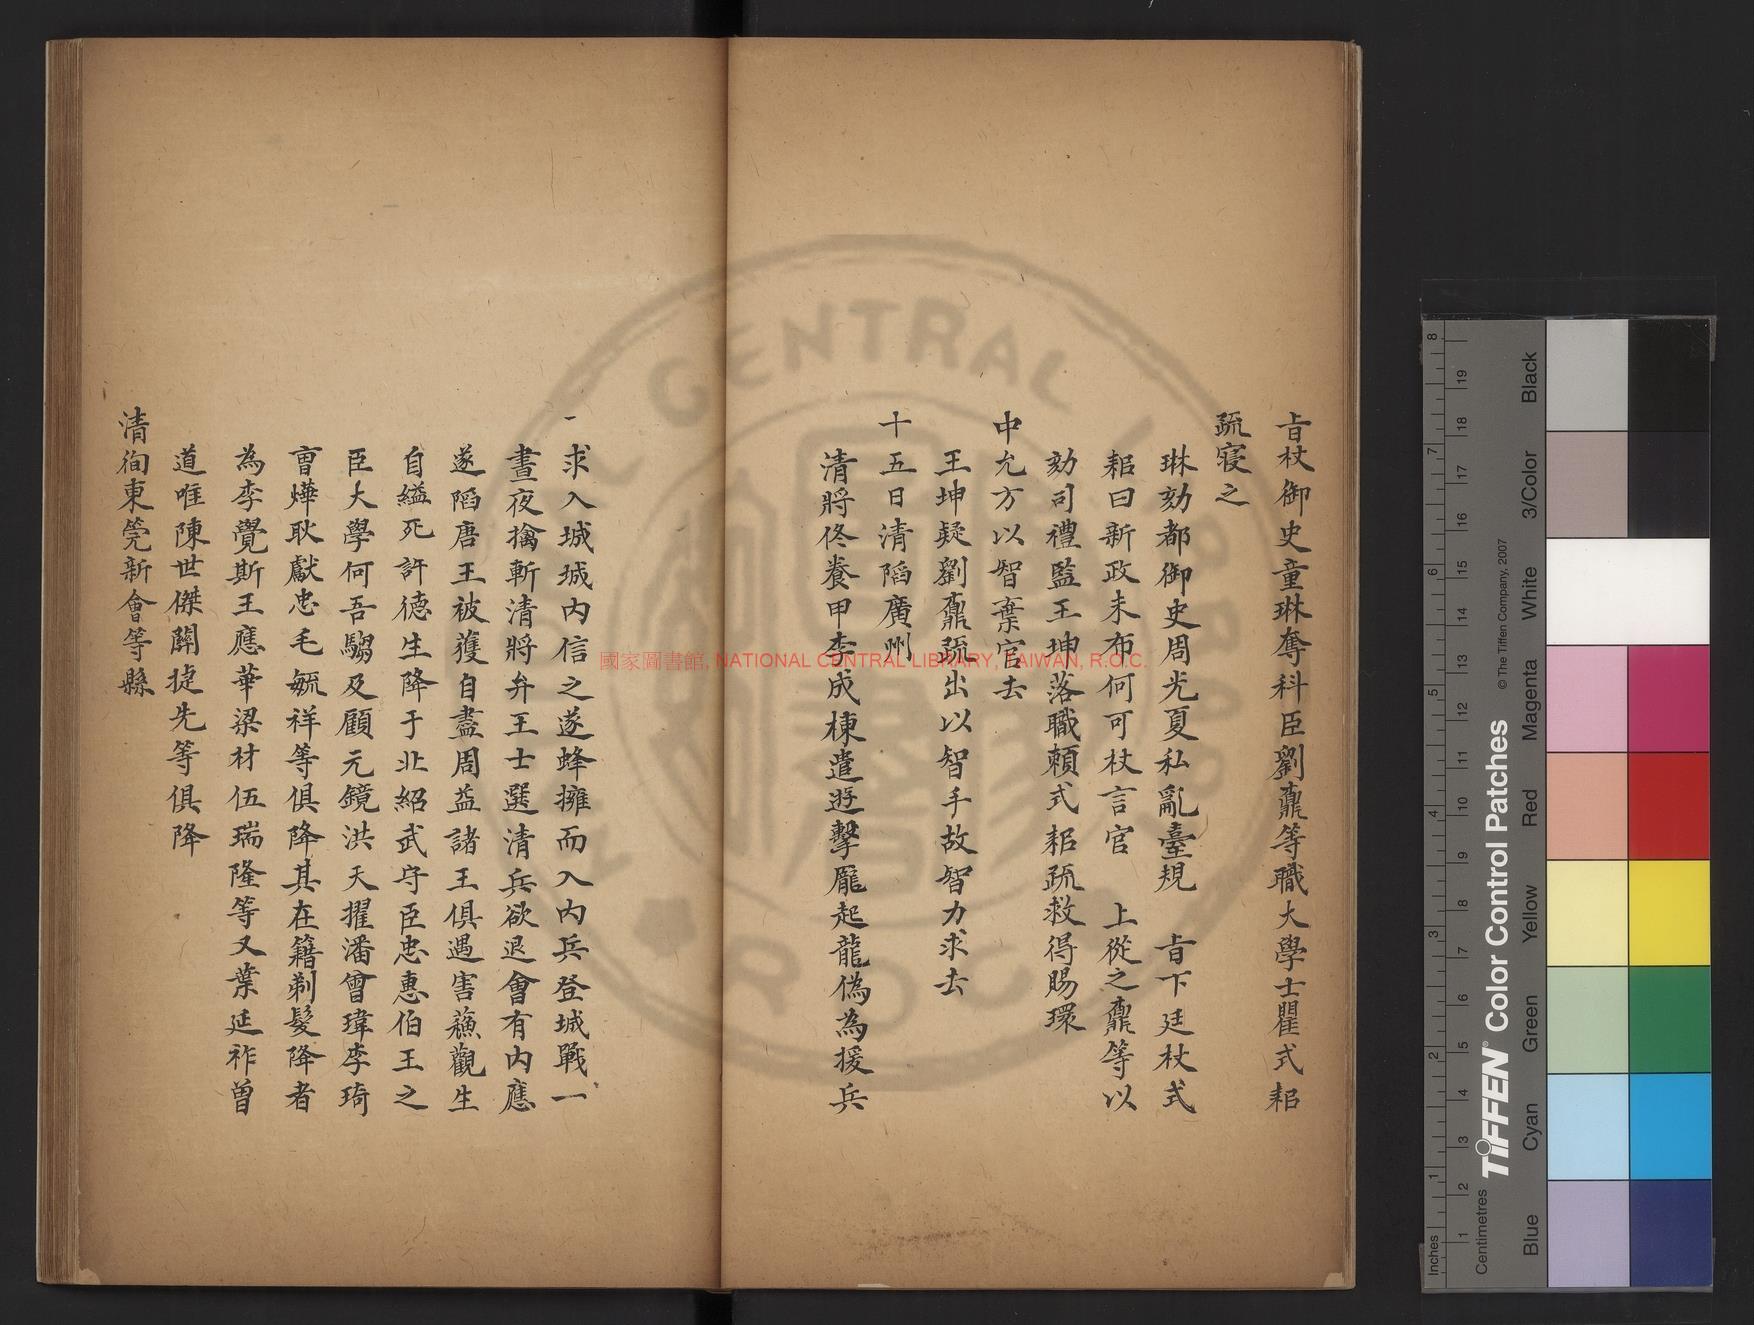 旨杖御史童琳奪科臣劉鼒等職大學士瞿式耜
疏寝之
琳劾都御史周光夏私亂臺規 旨下廷杖式
耜曰新政未布何可杖言官 上從之鼒等以
劾司禮監王坤落職頼式耜疏救得賜環
中允方以智棄官去
王坤疑劉鼒疏出以智手故智力求去
十五日清䧟廣州
清將佟養甲李成棟遣遊擊龎起龍偽為援兵
求入城城内信之遂蜂擁而入内兵登城戰一
晝夜擒斬清將弁王士選清兵欲退會有内應
遂䧟唐王被獲自盡周益諸王俱遇害蘓觀生
自縊死許德生降于北紹武守臣忠惠伯王之
臣大學何吾騶及顧元鏡洪天擢潘曾瑋李琦
曺燁耿獻忠毛毓祥等俱降其在籍剃髮降者
為李覺斯王應華梁材伍瑞隆等又葉廷祚曽
道唯陳世傑關㨗先等俱降
清徇東筦新會等縣
國家圖書館, NATIONAL CENTRAL LIBRARY, TAIWAN, R.O.C.
CENTRAL
R.O.C.
TIFFEN® Color Control Patches
© The Tiffen Company, 2007
Inches
Centimetres
Blue
Cyan
Green
Yellow
Red
Magenta
White
3/Color
Black